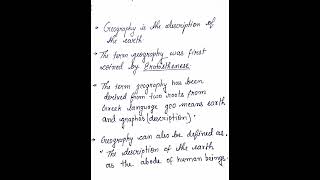 • Geography is the description of
the earth
• The term geography was first
coined by Eratosthenese.
• The term geography has been
derived from two roots from
Greek language geo means earth
and graphos (description).
• Geography can also be defined as.
" The description of the earth
as the abode of human beings.